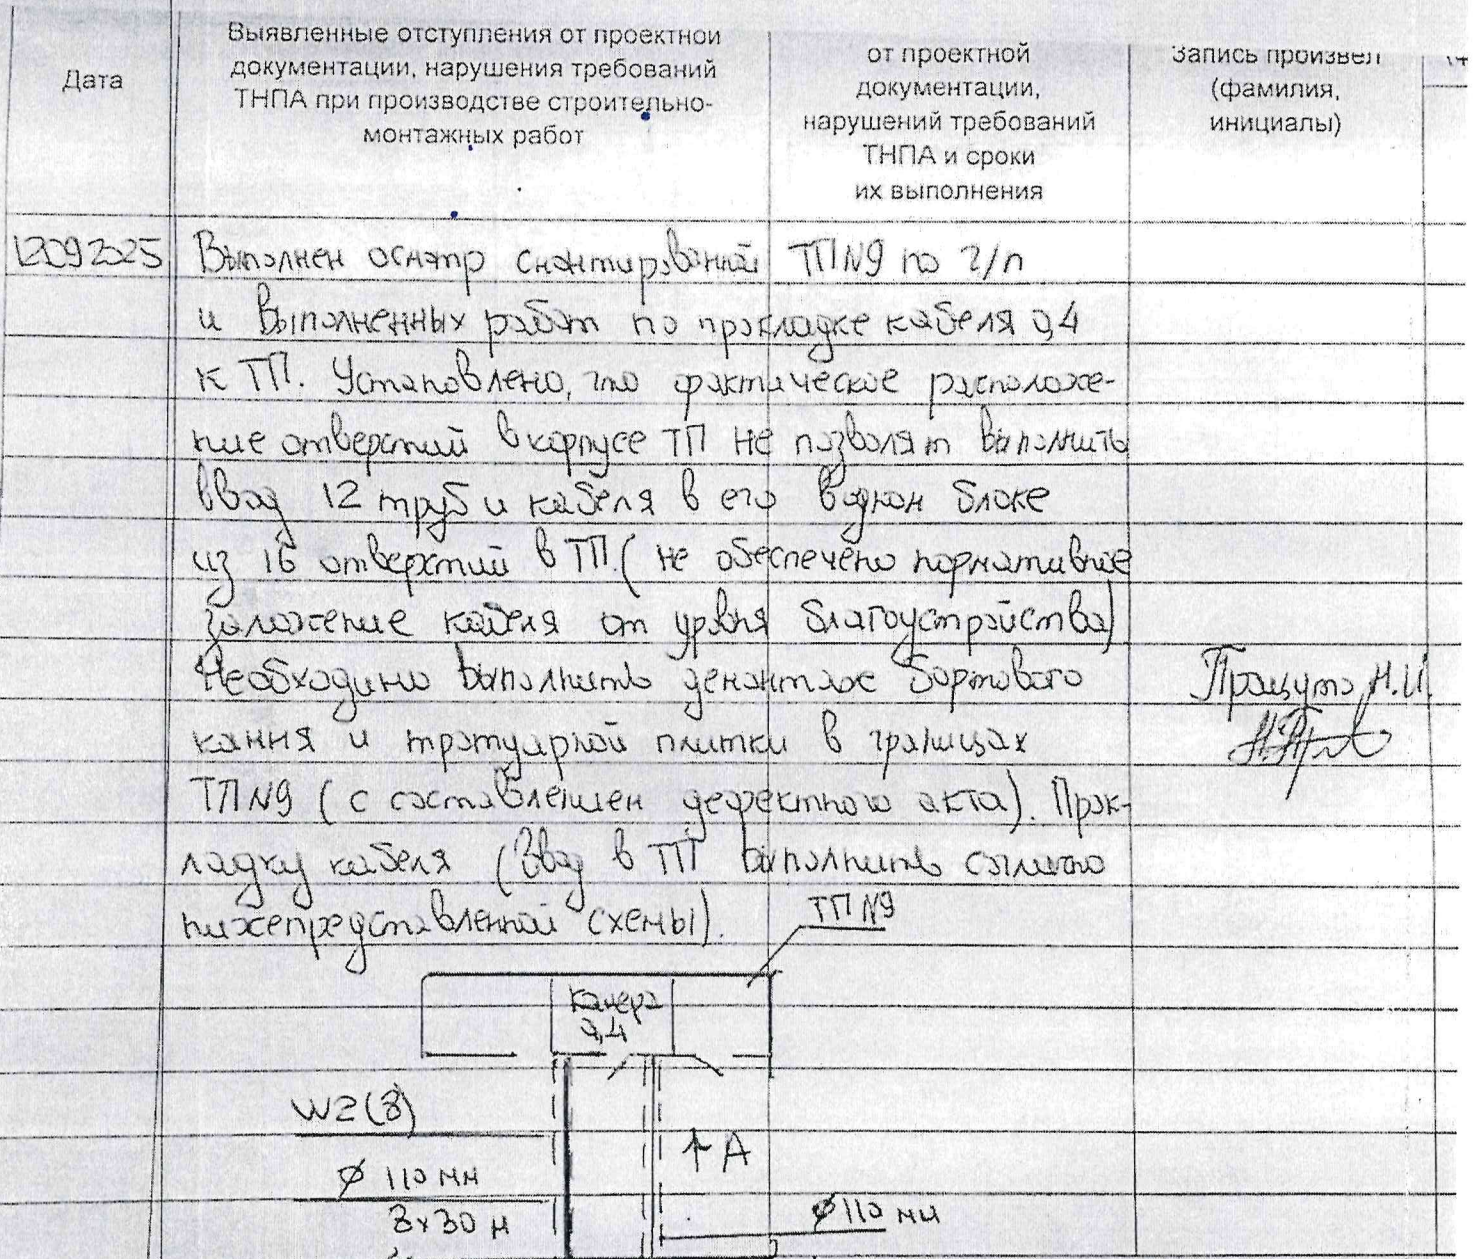 Дата
Выявленные отступления от проектной
документации, нарушения требований
ТНПА при производстве строительно-
монтажных работ
от проектной
документации,
нарушений требований
ТНПА и сроки
их выполнения
Запись произвел
(фамилия,
инициалы)
12092025
Выполнен осмотр смонтированной ТП№9 по г/п
и выполненных работ по прокладке кабеля 0,4
к ТП. Установлено, что фактическое расположе-
ние отверстий в корпусе ТП не позволят выполнить
ввод 12 труб и кабеля в его водном блоке
из 16 отверстий в ТП. (не обеспечено нормативное
заложение кабеля от уровня благоустройства)
Необходимо выполнить демонтаж бортового
камня и тротуарной плитки в границах
ТП№9 (с составлением дефектного акта). Прок-
ладку кабеля (Ввод в ТП выполнить согласно
нижепредставленной схемы).
Н.И.
ТП№9
Камера
0,4
W2(8)
↑ А
ø 110 мм
8х30 м
ø 110 мм